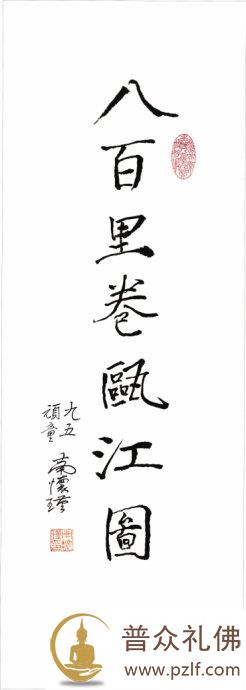 八百里卷甌江圖
九五
頑童
南懷瑾
普众礼佛
www.pzlf.com